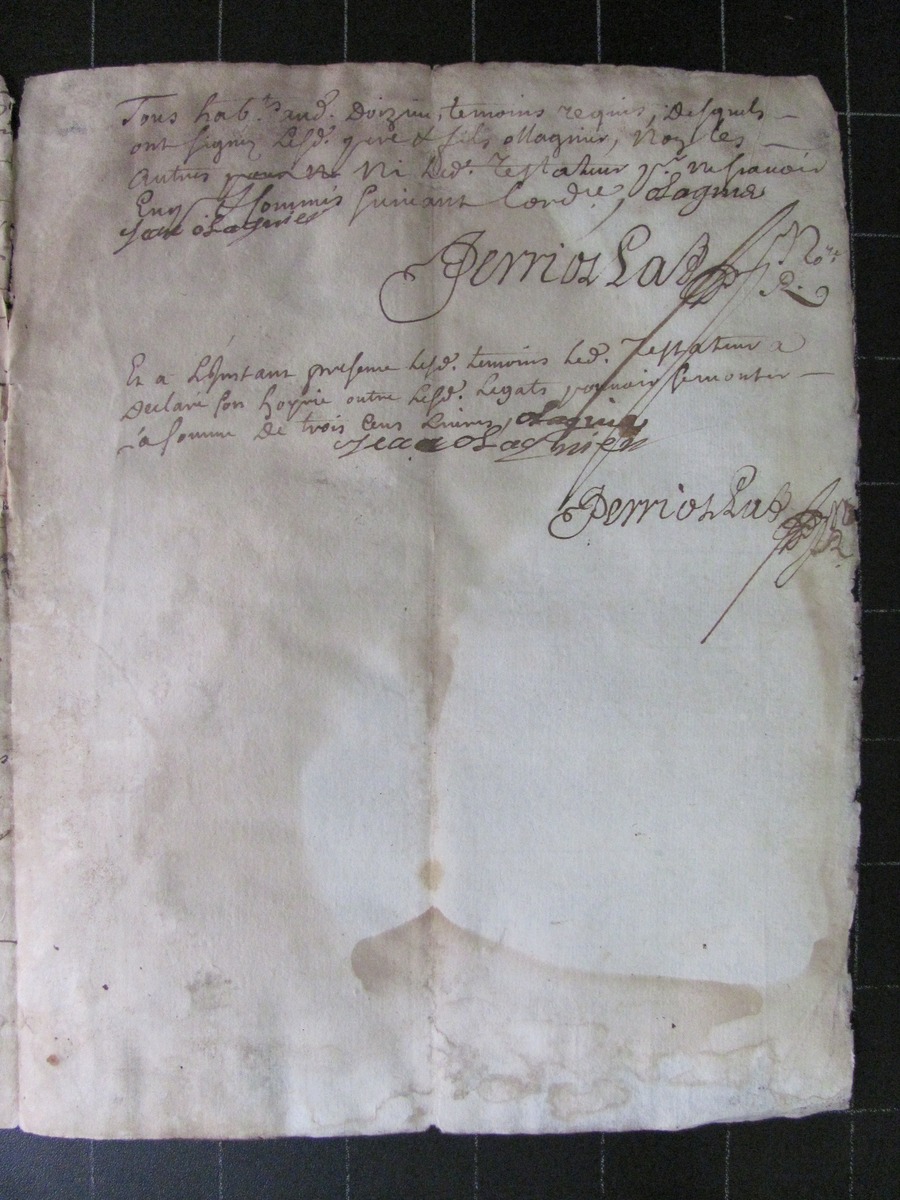 Tous hab.ts aud. Doizieu, temoins requis, Desquels
ont signez Lesd. pere & fils Magnier, Non les
autres Ni Led. Testateur p.r ne scavoir
Enq. & sommés suivant Lord.ce,
Jean
Perriol Lad No.re R.
Et a L'Instant presence desd. temoins Led. Testateur a
Declaré son hoyrie outre Lesd. Legats pouvoir se monter
a la somme de trois Cens Livres,
Jean
Perriol Lad